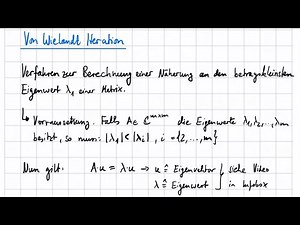 Von Wielandt Iteration
Verfahren zur Berechnung einer Näherung an den betragskleinsten
Eigenwert λ₁ einer Matrix.
↳ Voraussetzung: Falls A ∈ ℂᵐˣᵐ die Eigenwerte λ₁, λ₂, ..., λₘ
besitzt, so muss: |λ₁| < |λᵢ| , i = {2, ..., m}
Nun gilt: A·u = λ·u → u ≙ Eigenvektor } siehe Video
λ ≙ Eigenwert } in Infobox